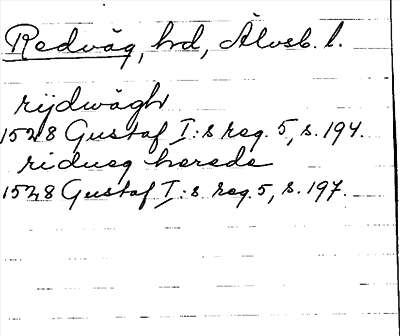 Redväg, hd, Älvsb. l.
rijdwägh
1528 Gustaf I:s reg. 5, s. 194.
riduag herede
1528 Gustaf I:s reg. 5, s. 197.